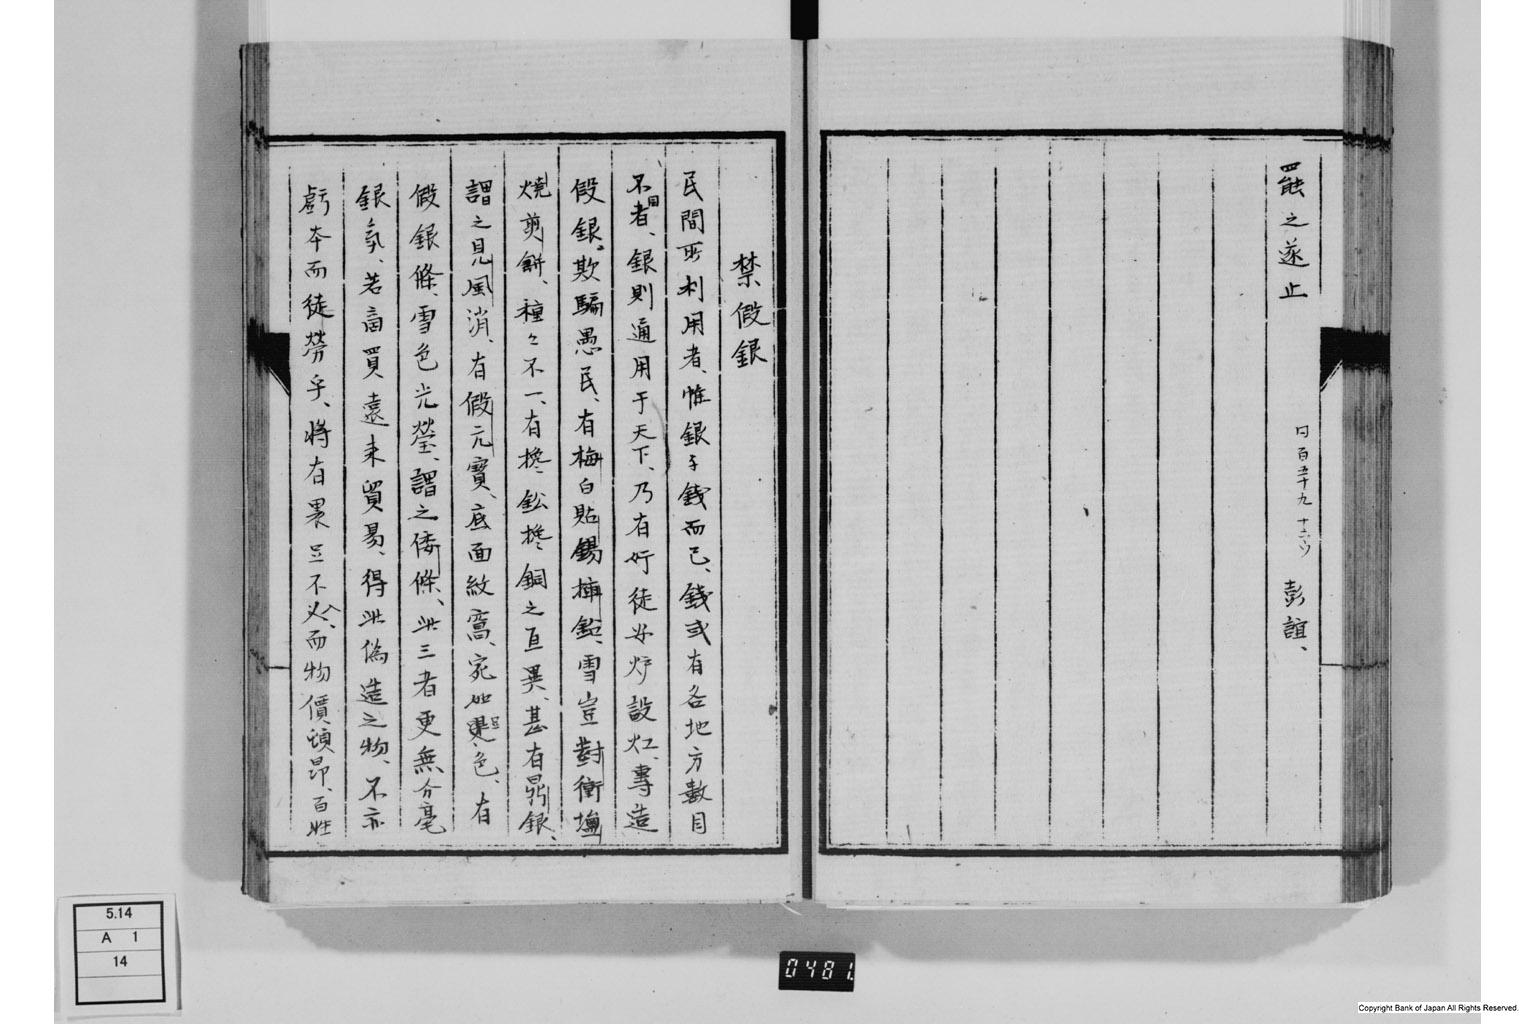 罷之遂止
同百五十九 十六ウ 彭誼、
禁假銀
民間所利用者、惟銀子錢而已、錢或有各地方數目
不用者、銀則通用于天下、乃有奸徒安炉設灶、專造
假銀。欺騙愚民、有梅白貼錫摔鉛、雪豈對衝壇
燒剪餅、種々不一、有搀鉛搀銅之直異、甚有鼎銀、
謂之見風消、有假元寶、底面紋窩、宛如足色、有
假銀條、雪色光瑩、謂之倭條、此三者更無分毫
銀氣、若商買遠来貿易、得此偽造之物、不亦
虧本而徒勞乎、將有畏足不入、而物價頓昂、百姓
5.14
A 1
14
0481.
Copyright Bank of Japan All Rights Reserved.